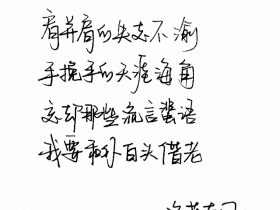 肩并肩的矢志不渝
手挽手的天涯海角
忘却那些流言蜚语
我要和你白头偕老